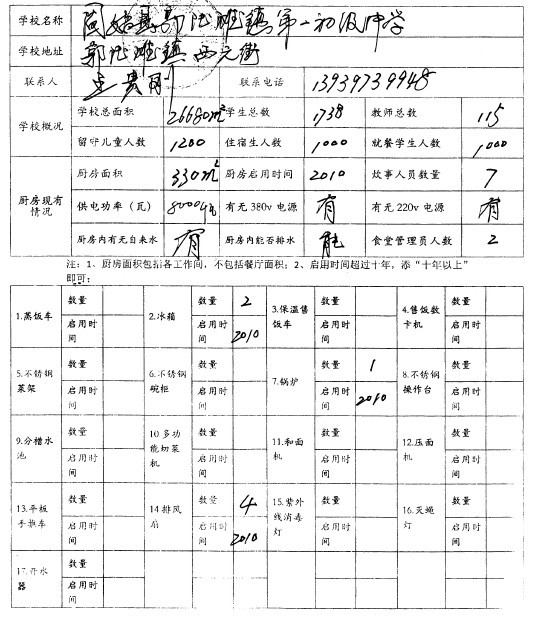 学校名称 固始县郭陆滩镇第一初级中学
学校地址 郭陆滩镇西元街
联系人 联系电话 13939739948
学校概况 学校总面积 26680m² 学生总数 1738 教师总数 115
留守儿童人数 1200 住宿生人数 1000 就餐学生人数 1000
厨房现有情况 厨房面积 330m² 厨房启用时间 2010 炊事人员数量 7
供电功率（瓦） 有无 380v 电源 有 有无 220v 电源 有
厨房内有无自来水 有 厨房内能否排水 能 食堂管理员人数 2
注：1、厨房面积包括各工作间，不包括餐厅面积；2、启用时间超过十年，添“十年以上”
即可；
1.蒸饭车 数量 2.冰箱 数量 2 3.保温售饭车 数量 4.售饭数卡机 数量
启用时间 启用时间 2010 启用时间 启用时间
5.不锈钢菜架 数量 6.不锈钢碗柜 数量 7.锅炉 数量 1 8.不锈钢操作台 数量
启用时间 启用时间 启用时间 2010 启用时间
9.分槽水池 数量 10 多功能切菜机 数量 11.和面机 数量 12.压面机 数量
启用时间 启用时间 启用时间 启用时间
13.平板手推车 数量 14 排风扇 数量 4 15.紫外线消毒灯 数量 16.灭蝇灯 数量
启用时间 启用时间 2010 启用时间 启用时间
17.开水器 数量
启用时间